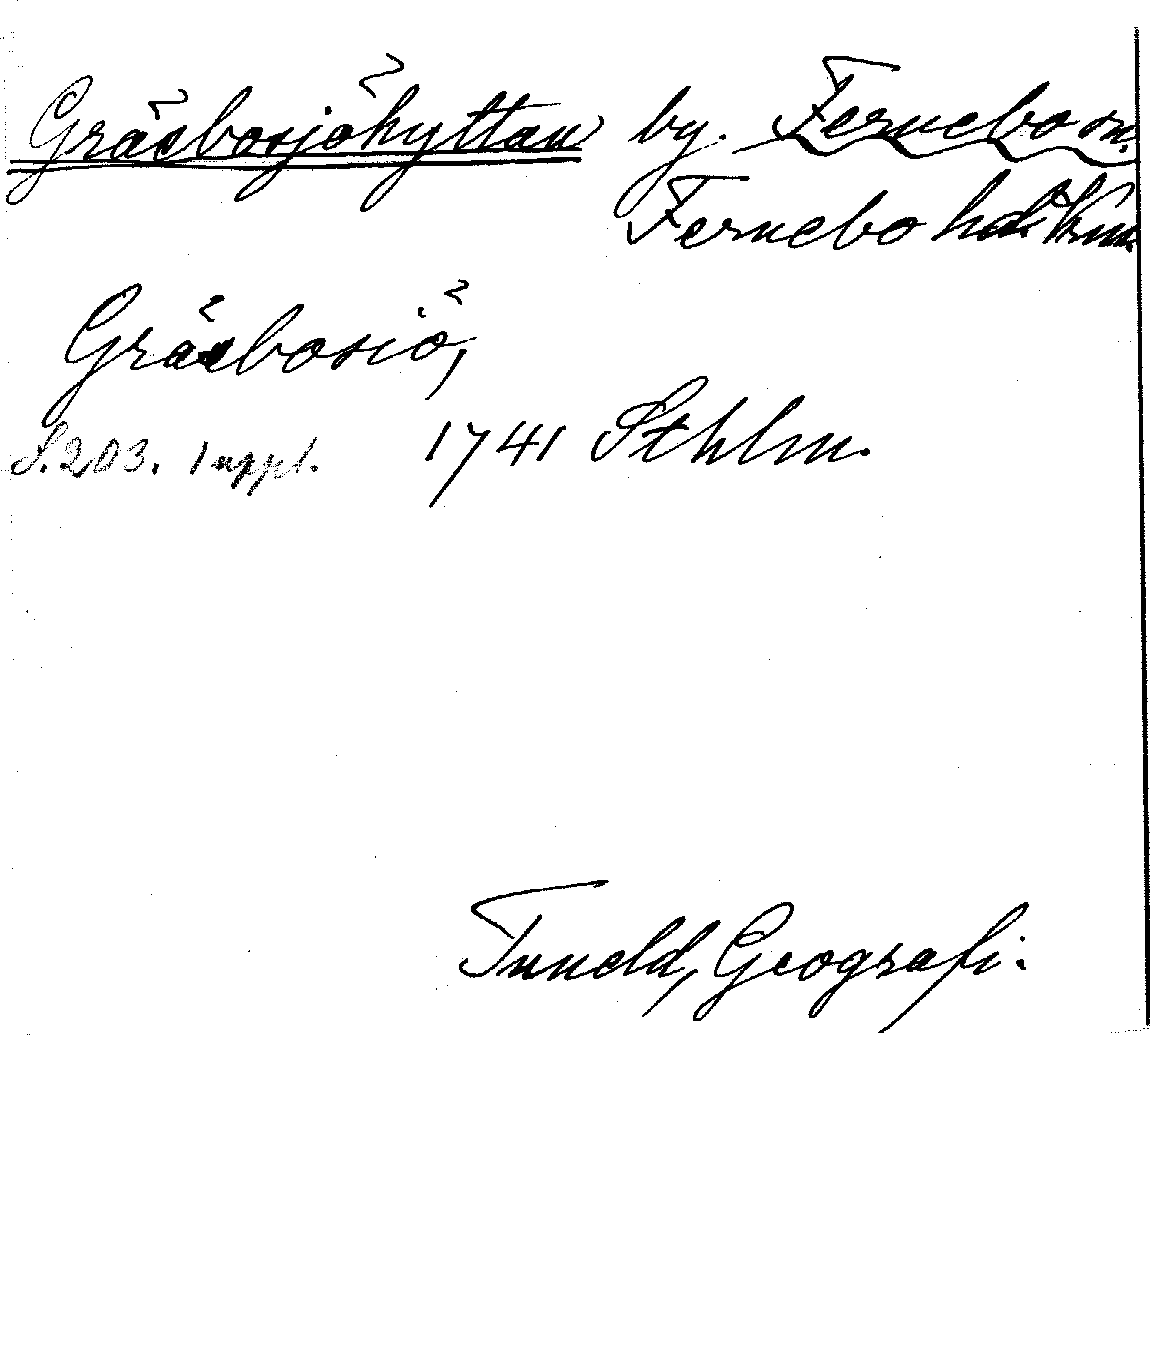 Gräsbosjöhyttan by. Fernebo sn.
Fernebo hd
Gräsbosiö,
S. 203. 1 uppl. 1741 Sthlm.
Tuneld, Geografi.